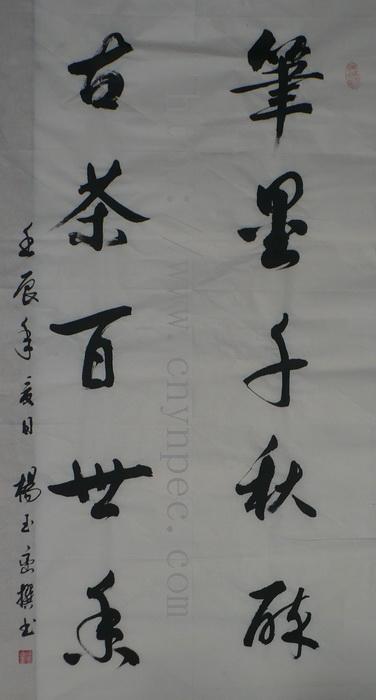 筆墨千秋醉
古茶百世香
壬辰年夏日 楊玉巒撰书
http://www.cnynpec.com